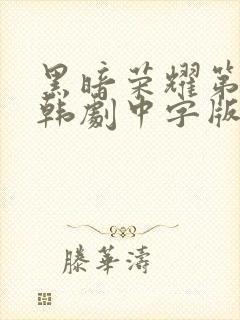 黑暗荣耀第
韩劇中字版
滕華濤